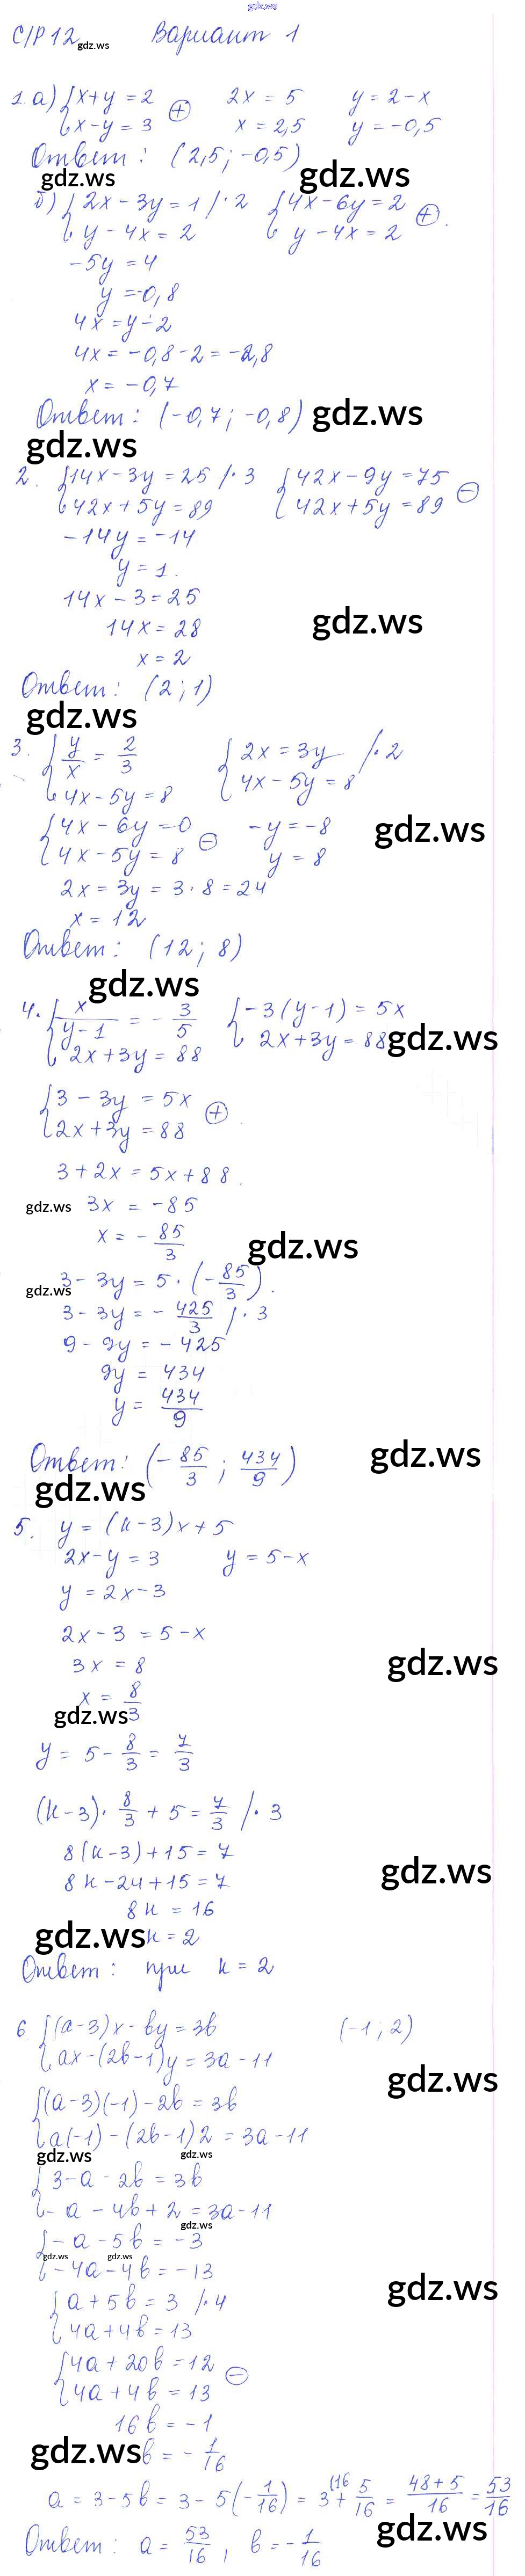 gdz.ws
С/Р 12 gdz.ws Вариант 1
1. а) { x+y=2 ⊕ 2x=5 y=2-x
x-y=3 x=2,5 y=-0,5
Ответ: (2,5; -0,5)
gdz.ws gdz.ws
б) { 2x-3y=1 /·2 { 4x-6y=2 ⊕
y-4x=2 y-4x=2
-5y=4
y=-0,8
4x=y-2
4x=-0,8-2=-2,8
x=-0,7
Ответ: (-0,7; -0,8) gdz.ws
gdz.ws
2. { 14x-3y=25 /·3 { 42x-9y=75 ⊖
42x+5y=89 42x+5y=89
-14y=-14
y=1.
14x-3=25
14x=28 gdz.ws
x=2
Ответ: (2; 1)
gdz.ws
3. { y/x = 2/3 { 2x=3y /·2
4x-5y=8 4x-5y=8
{ 4x-6y=0 ⊖ -y=-8 gdz.ws
4x-5y=8 y=8
2x=3y=3·8=24
x=12
Ответ: (12; 8)
gdz.ws
4. { x/(y-1) = -3/5 { -3(y-1)=5x
2x+3y=88 2x+3y=88 gdz.ws
{ 3-3y=5x ⊕
2x+3y=88
3+2x=5x+88.
gdz.ws 3x=-85
x=-85/3 gdz.ws
3-3y=5·(-85/3).
gdz.ws
3-3y=-425/3 /·3
9-9y=-425
9y=434
y=434/9
Ответ: (-85/3; 434/9) gdz.ws
gdz.ws
5. y=(к-3)x+5
2x-y=3 y=5-x
y=2x-3
2x-3=5-x
3x=8 gdz.ws
x=8/3
gdz.ws
y=5-8/3=7/3
(к-3)·8/3+5=7/3 /·3
8(к-3)+15=7
8к-24+15=7 gdz.ws
8к=16
gdz.ws к=2
Ответ: при к=2
6 { (a-3)x-by=3b (-1; 2)
ax-(2b-1)y=3a-11
gdz.ws
{ (a-3)(-1)-2b=3b
a(-1)-(2b-1)2=3a-11
gdz.ws gdz.ws
{ 3-a-2b=3b
-a-4b+2=3a-11
gdz.ws
{ -a-5b=-3
gdz.ws gdz.ws
-4a-4b=-13
{ a+5b=3 /·4 gdz.ws
4a+4b=13
{ 4a+20b=12 ⊖
4a+4b=13
16b=-1
gdz.ws b=-1/16
a=3-5b=3-5(-1/16)=3(16+5/16=(48+5)/16=53/16
gdz.ws
Ответ: a=53/16, b=-1/16